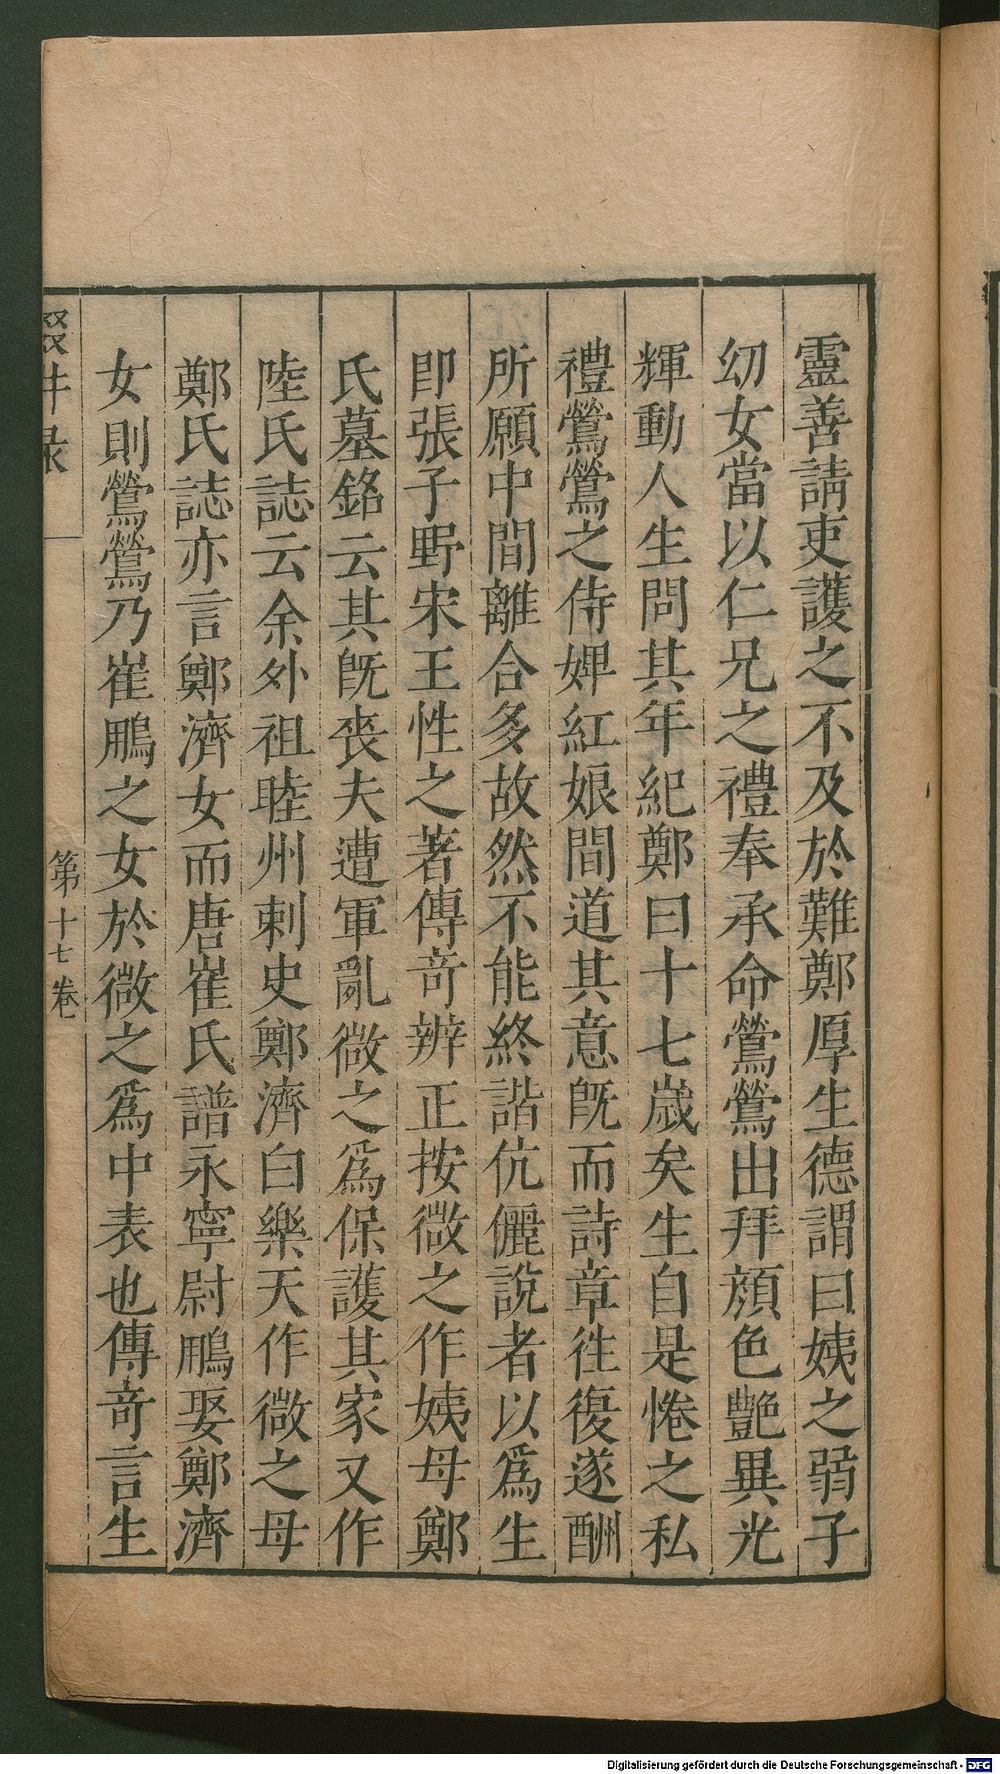 靈善請吏護之不及於難鄭厚生德謂曰姨之弱子
幼女當以仁兄之禮奉承命鶯鶯出拜顏色艷異光
輝動人生問其年紀鄭曰十七嵗矣生自是惓之私
禮鶯鶯之侍婢紅娘間道其意旣而詩章徃復遂酬
所願中間離合多故然不能終諧伉儷說者以爲生
卽張子野宋王性之著傳奇辨正按微之作姨母鄭
氏墓銘云其旣喪夫遭軍亂微之爲保護其家又作
陸氏誌云余外祖睦州刺史鄭濟白樂天作微之母
鄭氏誌亦言鄭濟女而唐崔氏譜永寧尉鵬娶鄭濟
女則鶯鶯乃崔鵬之女於微之爲中表也傳奇言生
輟畊录
第十七卷
Digitalisierung gefördert durch die Deutsche Forschungsgemeinschaft - DFG